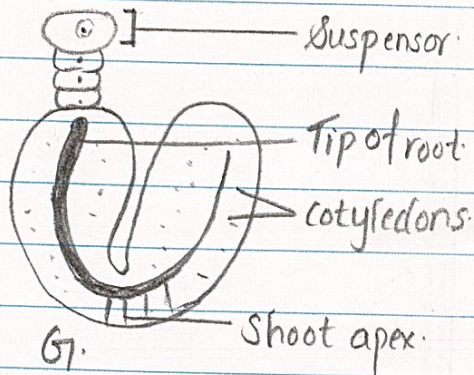 Suspensor.
Tip of root.
Cotyledons.
Shoot apex.
G.